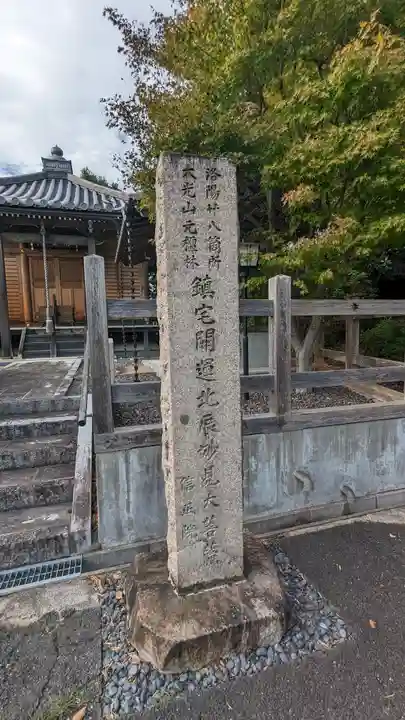 洛陽廿八箇所
大光山元頂妙林
鎮宅開運北辰妙見大菩薩